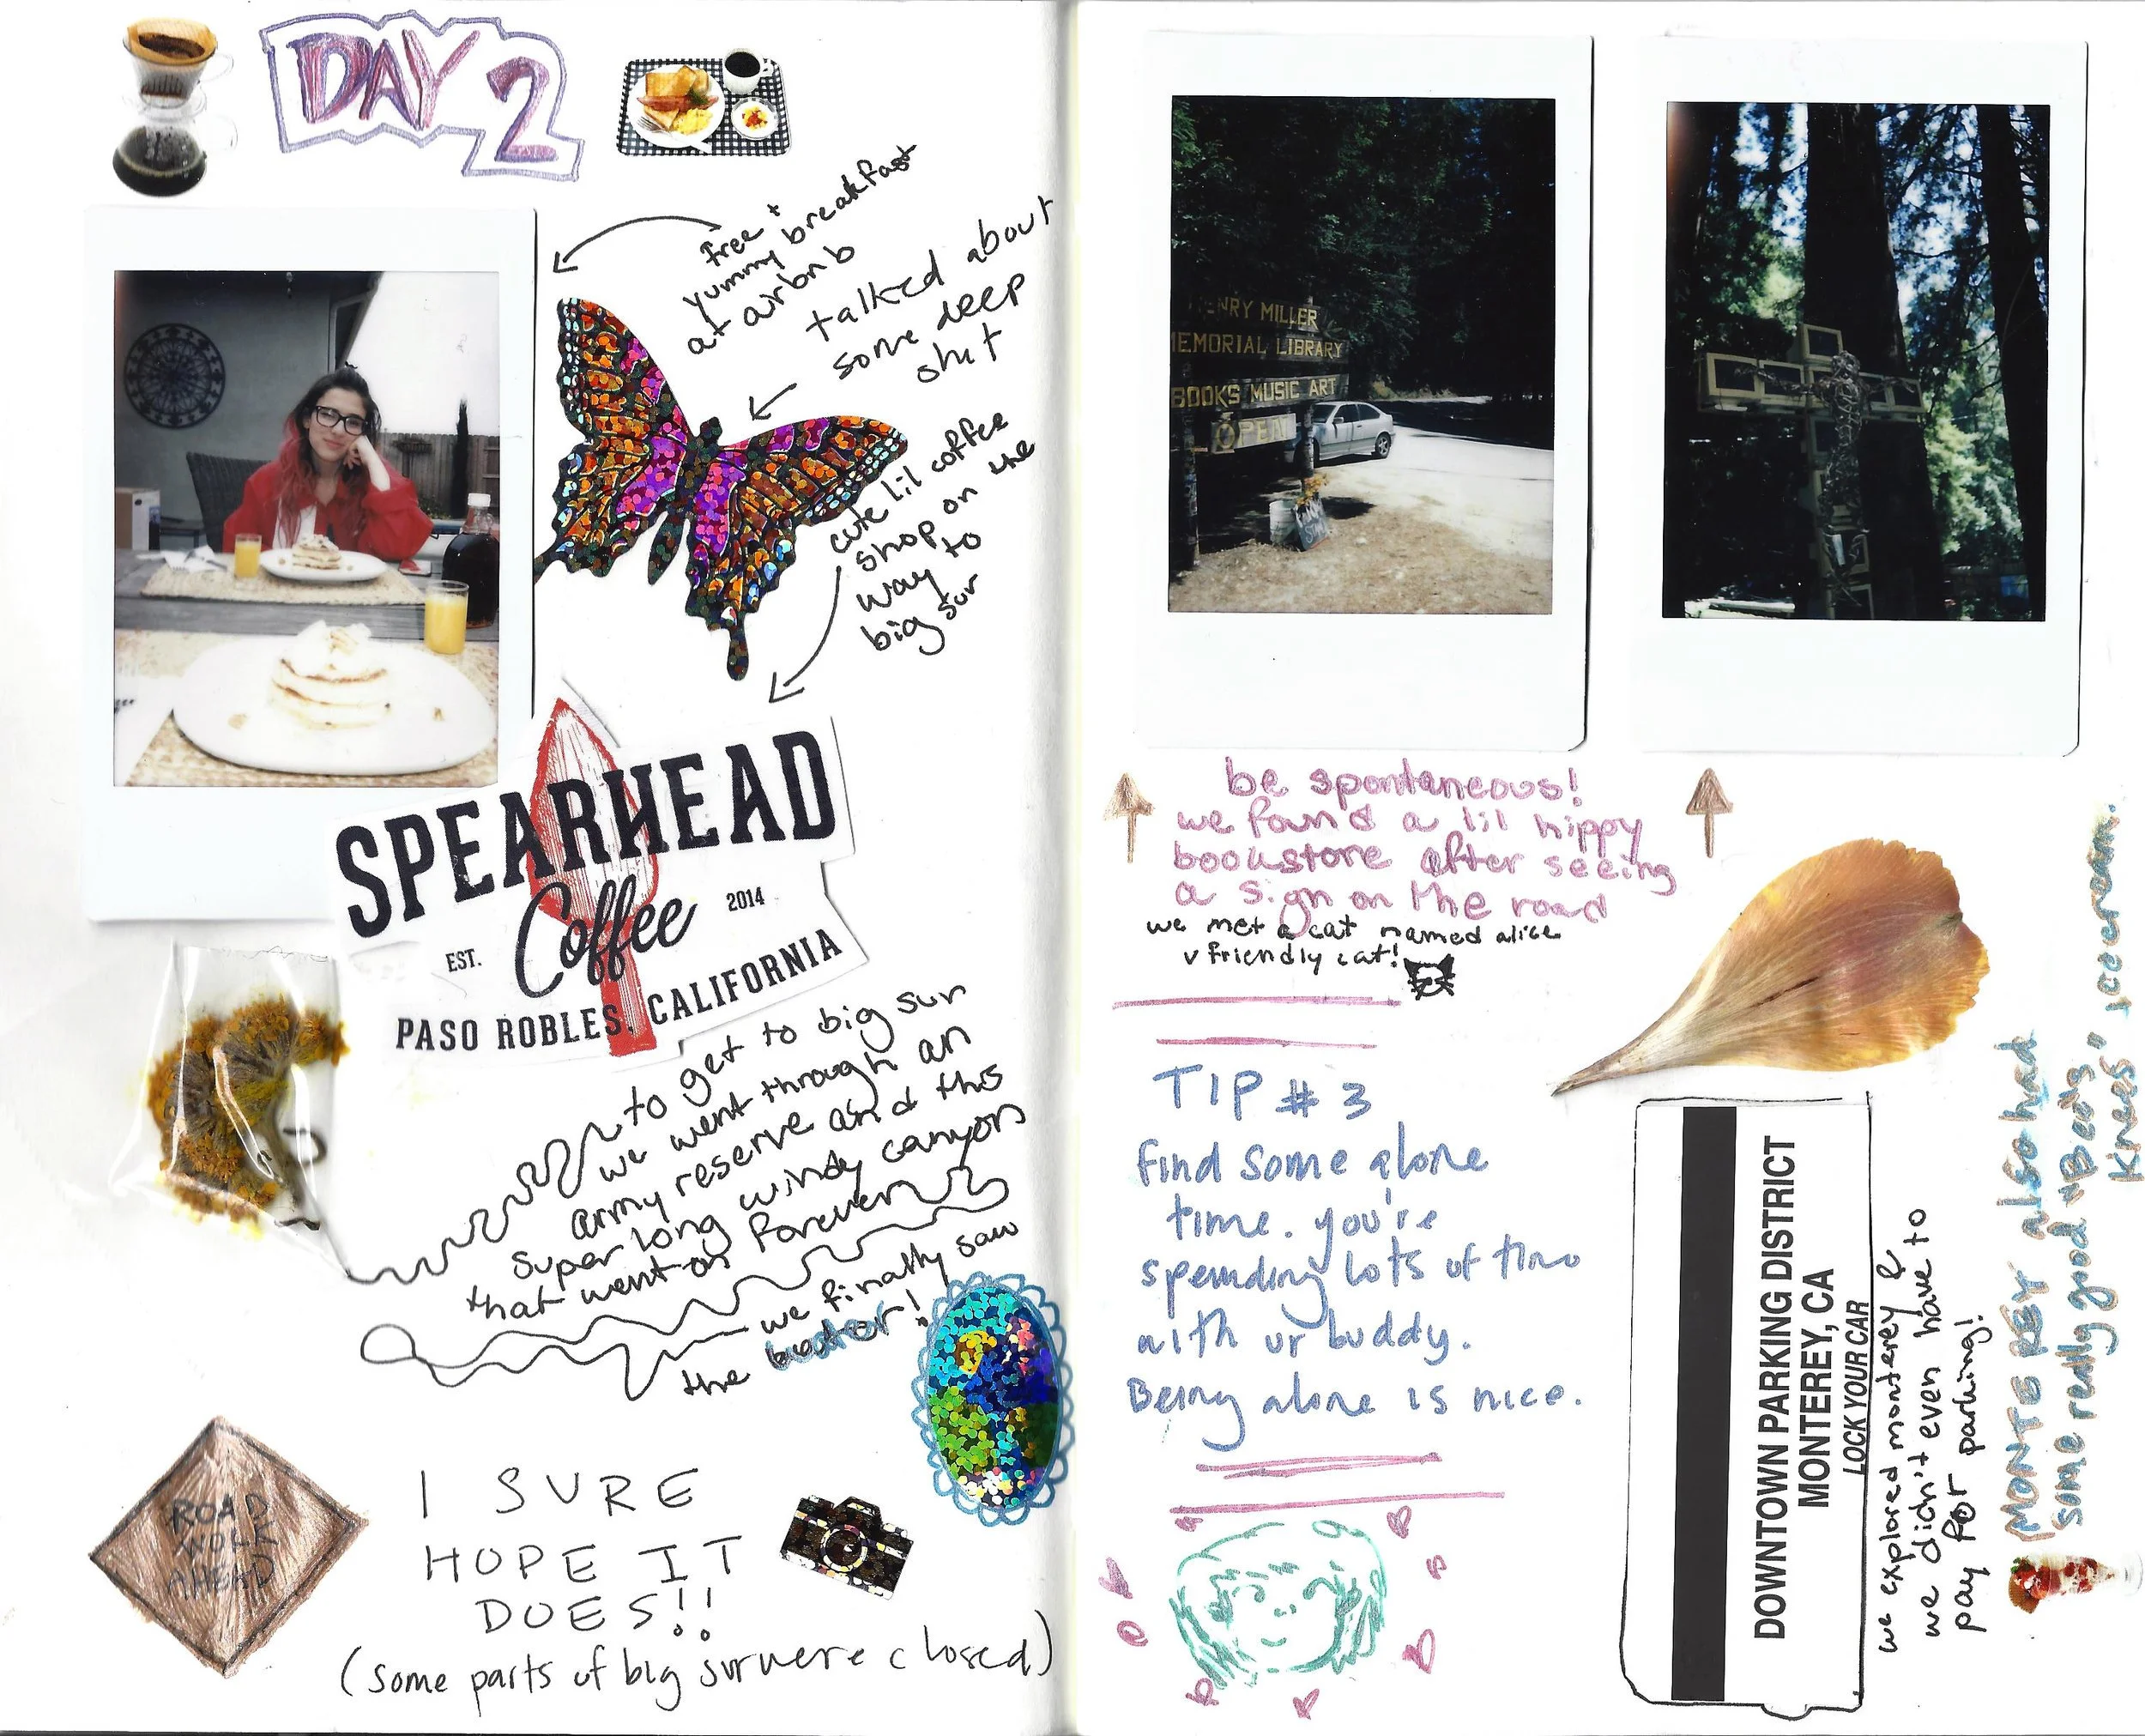 DAY 2
free +
yummy breakfast
at airbnb
talked about
some deep
shit
cute lil coffee
shop on the
way to
big sur
SPEARHEAD
Coffee
EST.
2014
PASO ROBLES, CALIFORNIA
to get to big sur
we went through an
army reserve and this
super long windy canyon
that went on forever
we finally saw
the water!
ROAD
WORK
AHEAD
I SURE
HOPE IT
DOES!!
(some parts of big sur were closed)
ENRY MILLER
MEMORIAL LIBRARY
BOOKS MUSIC ART
OPEN
be spontaneous!
we found a lil hippy
bookstore after seeing
a sign on the road
we met a cat named alice
v friendly cat!
TIP # 3
find some alone
time. you're
spending lots of time
with ur buddy.
Being alone is nice.
DOWNTOWN PARKING DISTRICT
MONTEREY, CA
LOCK YOUR CAR
we explored monterey &
we didn't even have to
pay for parking!
MONTEREY also had
some really good "Bee's
Knees" icecream.